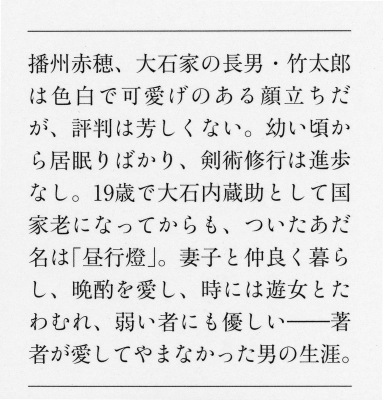 播州赤穂、大石家の長男・竹太郎
は色白で可愛げのある顔立ちだ
が、評判は芳しくない。幼い頃か
ら居眠りばかり、剣術修行は進歩
なし。19歳で大石内蔵助として国
家老になってからも、ついたあだ
名は｢昼行燈｣。妻子と仲良く暮ら
し、晩酌を愛し、時には遊女とた
わむれ、弱い者にも優しい――著
者が愛してやまなかった男の生涯。